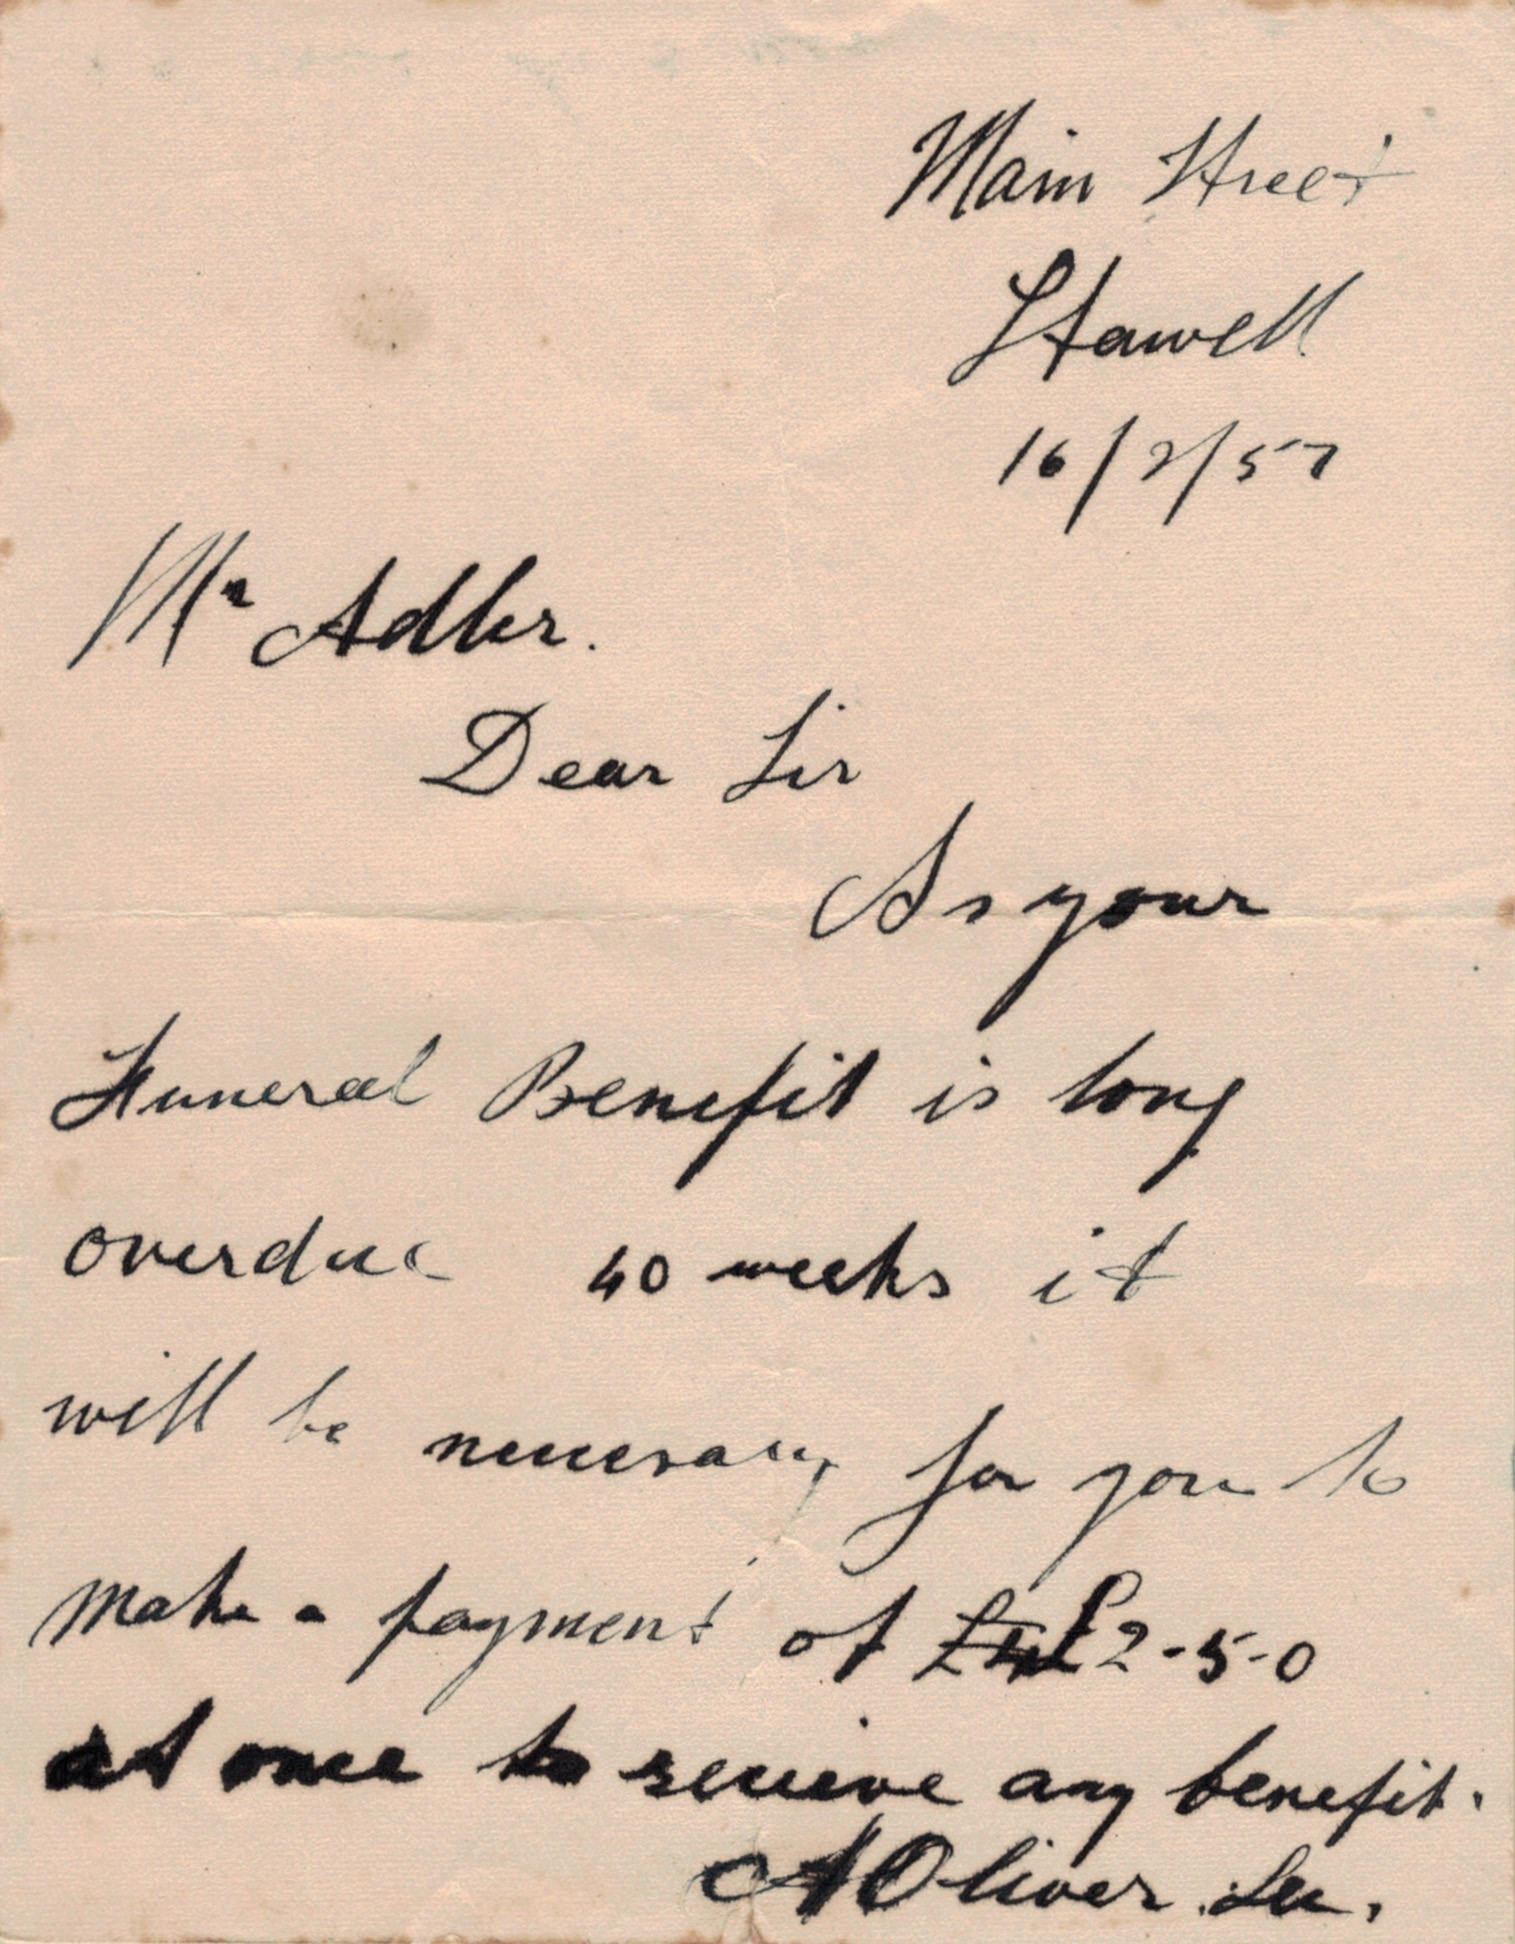 Main Street
Stawell
16/2/57
Mr Adler.
Dear Sir
As your
Funeral Benefit is long
overdue 40 weeks it
will be necesary for you to
make a payment of £2-5-0
at once to recieve any benefit.
A Oliver. Sec.